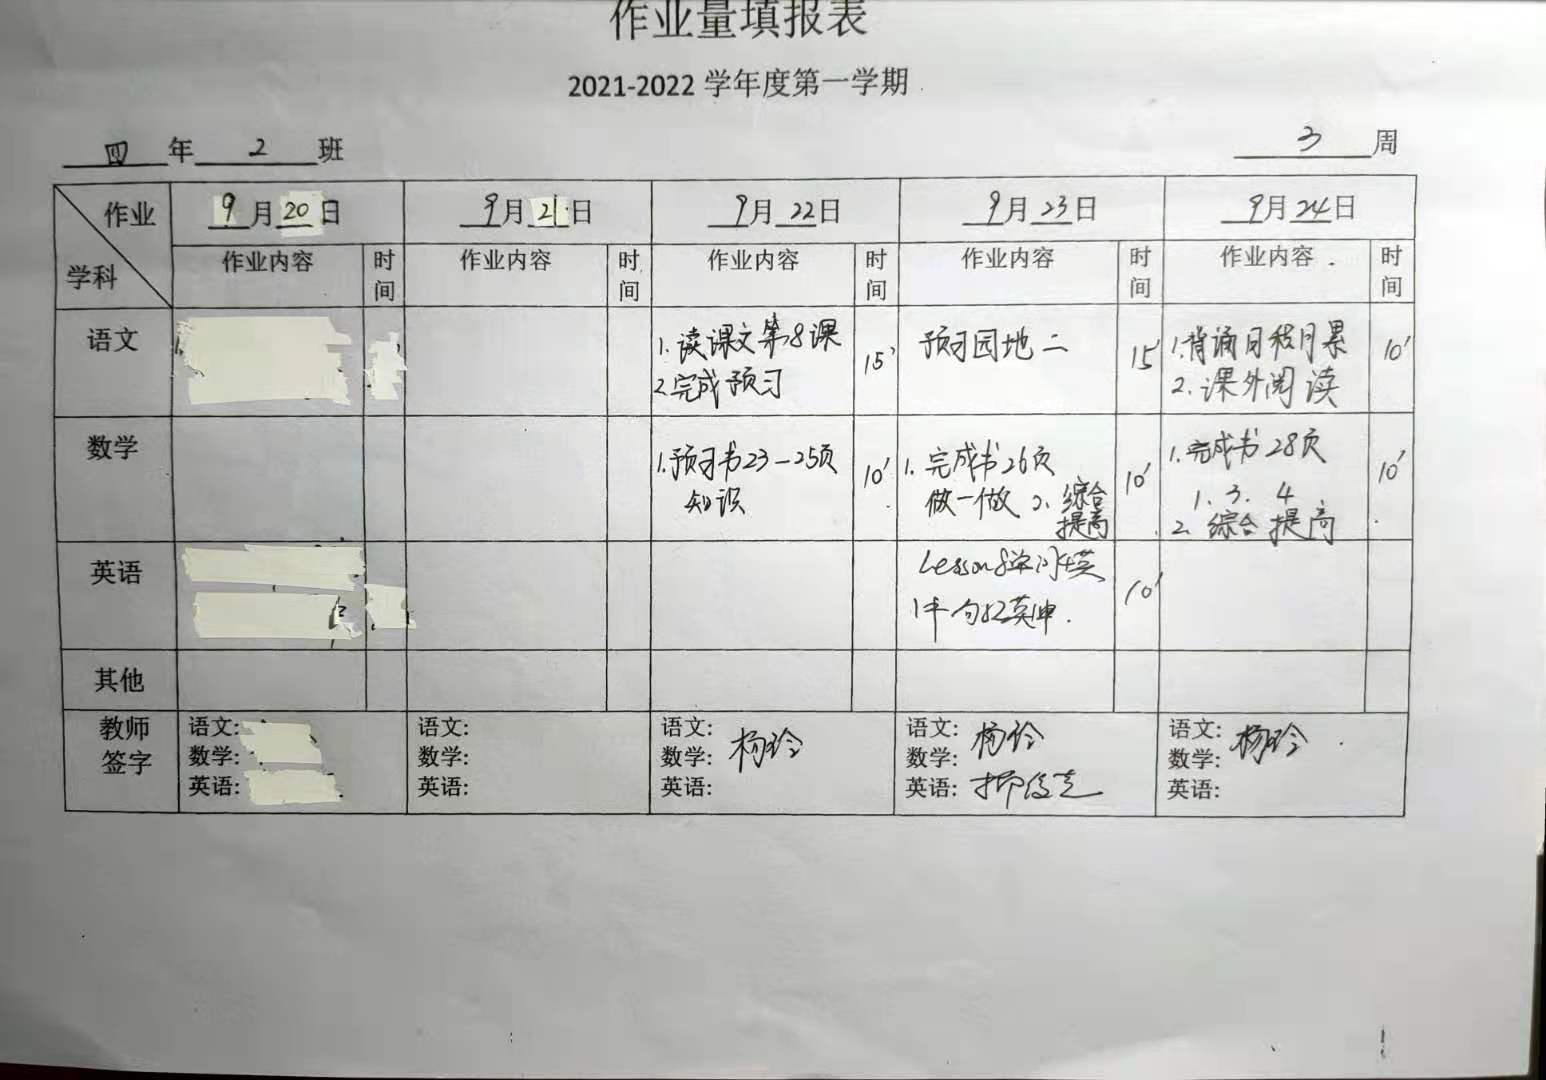 作业量填报表
2021-2022 学年度第一学期
四 年 2 班
3 周
作业
学科
9 月 20 日
9 月 21 日
9 月 22 日
9 月 23 日
9 月 24 日
作业内容 时间
作业内容 时间
作业内容 时间
作业内容 时间
作业内容 时间
语文
1. 读课文第8课
2. 完成预习
15'
预习园地二
15'
1. 背诵日积月累
2. 课外阅读
10'
数学
1. 预习书23-25页
知识
10'
1. 完成书26页
做一做 2. 综合
提高
10'
1. 完成书28页
1. 3. 4
2. 综合提高
10'
英语
Lesson 8
10'
其他
教师
签字
语文:
数学:
英语:
语文:
数学:
英语:
语文:
数学: 杨玲
英语:
语文: 杨玲
数学:
英语:
语文: 杨玲
数学:
英语: